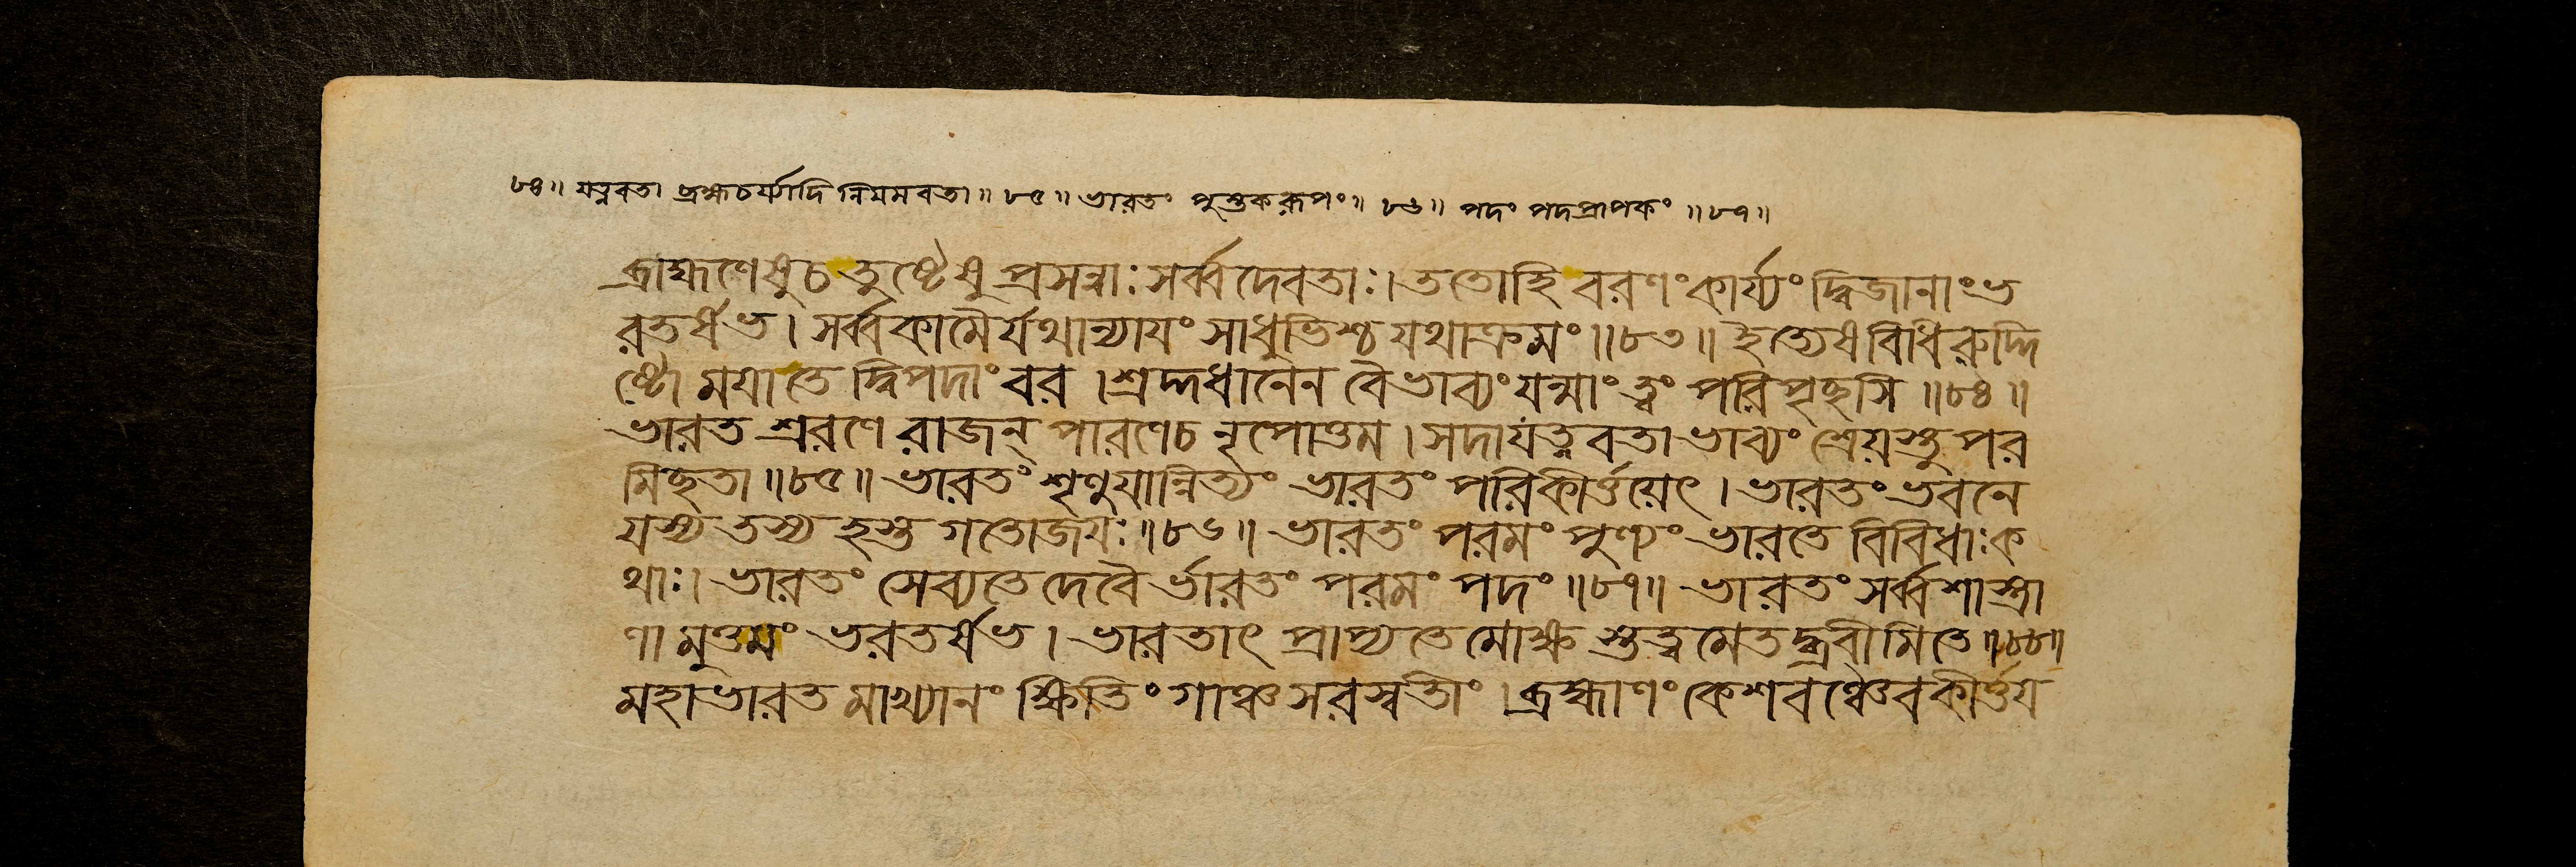 ৮৪॥ যত্নবতা ব্রহ্মচর্য্যাদি নিয়মবতা॥ ৮৫॥ ভারতং পুস্তকরূপং॥ ৮৬॥ পদং পদপ্রাপকং ॥৮৭॥
ব্রাহ্মণেষুচ তুষ্টেষু প্রসন্নাঃ সর্ব্বদেবতাঃ। ততোহি বরণংকার্য্যং দ্বিজানাংভ
রতর্ষভ। সর্ব্বকামৈর্যথান্যায়ং সাধুভিশ্চ যথাক্রমং॥৮৩॥ ইত্যেষ বিধিরুদ্দি
ষ্টো ময়া তে দ্বিপদাং বর। শ্রদ্দধানেন বৈ ভাব্যং যন্মাং ত্বং পরিপৃচ্ছসি॥৮৪॥
ভারত শ্রবণে রাজন্ পারণেচ নৃপোত্তম। সদাযত্নবতা ভাব্যং শ্রেয়স্তু পর
মিচ্ছতা॥৮৫॥ ভারতং শৃণুয়ান্নিত্যং ভারতং পরিকীর্ত্তয়েৎ। ভারতং ভবনে
যস্য তস্য হস্ত গতোজয়ঃ॥৮৬॥ ভারতং পরমং পুণ্যং ভারতে বিবিধাঃক
থাঃ। ভারতং সেব্যতে দেবৈর্ভারতং পরমং পদং॥৮৭॥ ভারতং সর্ব্বশাস্ত্রা
ণামুত্তমং ভরতর্ষভ। ভারতাৎ প্রাপ্যতে মোক্ষ স্তত্ত্বমেতদ্ব্রবীমিতে॥৮৮॥
মহাভারত মাখ্যানং ক্ষিতিং গাঞ্চ সরস্বতীং। ব্রহ্মাণং কেশবঞ্চৈব কীর্ত্তয়